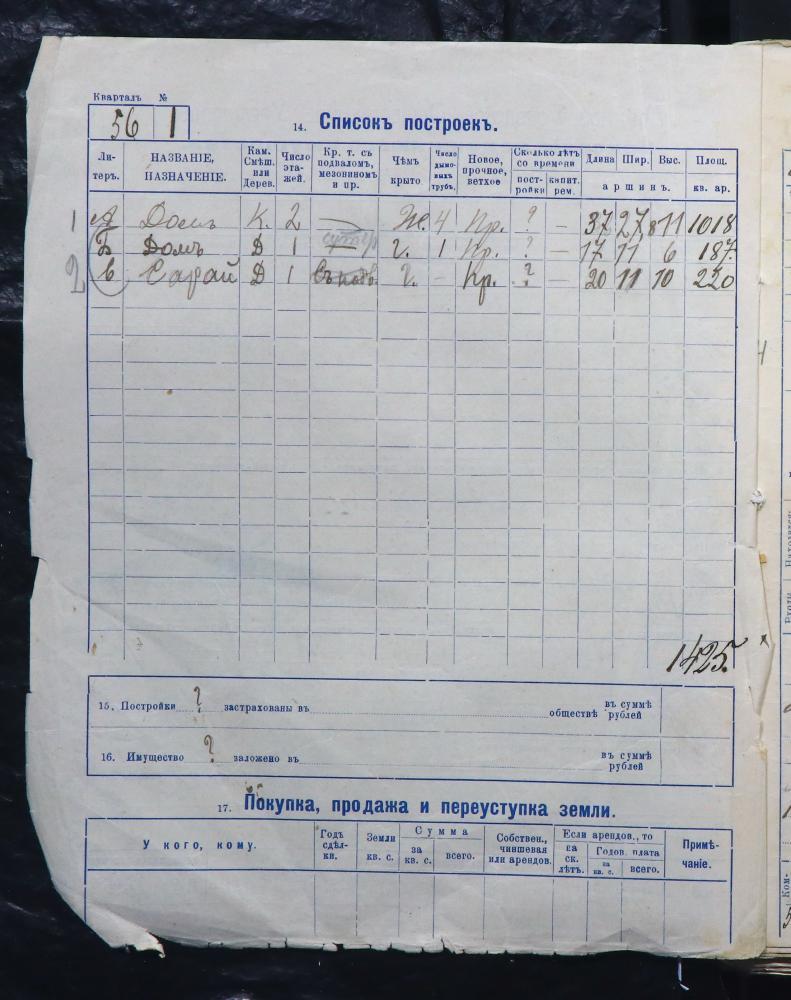 Кварталъ №
56 1
14. Списокъ построекъ.
Ли-теръ. НАЗВАНІЕ, НАЗНАЧЕНІЕ. Кам. Смѣш. или Дерев. Число эта-жей. Кр. т. съ подваломъ, мезониномъ и пр. Чѣмъ крыто Число дымо-выхъ трубъ. Новое, прочное, ветхое Сколько лѣтъ со времени пост-ройки капит. рем. Длина Шир. Выс. аршинъ. Площ. кв. ар.
1 А Домъ К. 2 — Ж. 4 Пр. ? — 37 27 11 1018
Б Домъ Д 1 — 1 Кр. ? — 17 11 6 187.
2 в Сарай Д 1 — Кр. ? — 20 11 10 220
1425.
15. Постройки ? застрахованы въ обществѣ въ суммѣ рублей
16. Имущество ? заложено въ въ суммѣ рублей
17. Покупка, продажа и переуступка земли.
У кого, кому. Годъ сдѣл-ки. Земли кв. с. Сумма за кв. с. всего. Собствен., чиншевая или арендов. Если арендов., то на ск. лѣтъ. Годов. плата за кв. с. всего. Примѣ-чаніе.